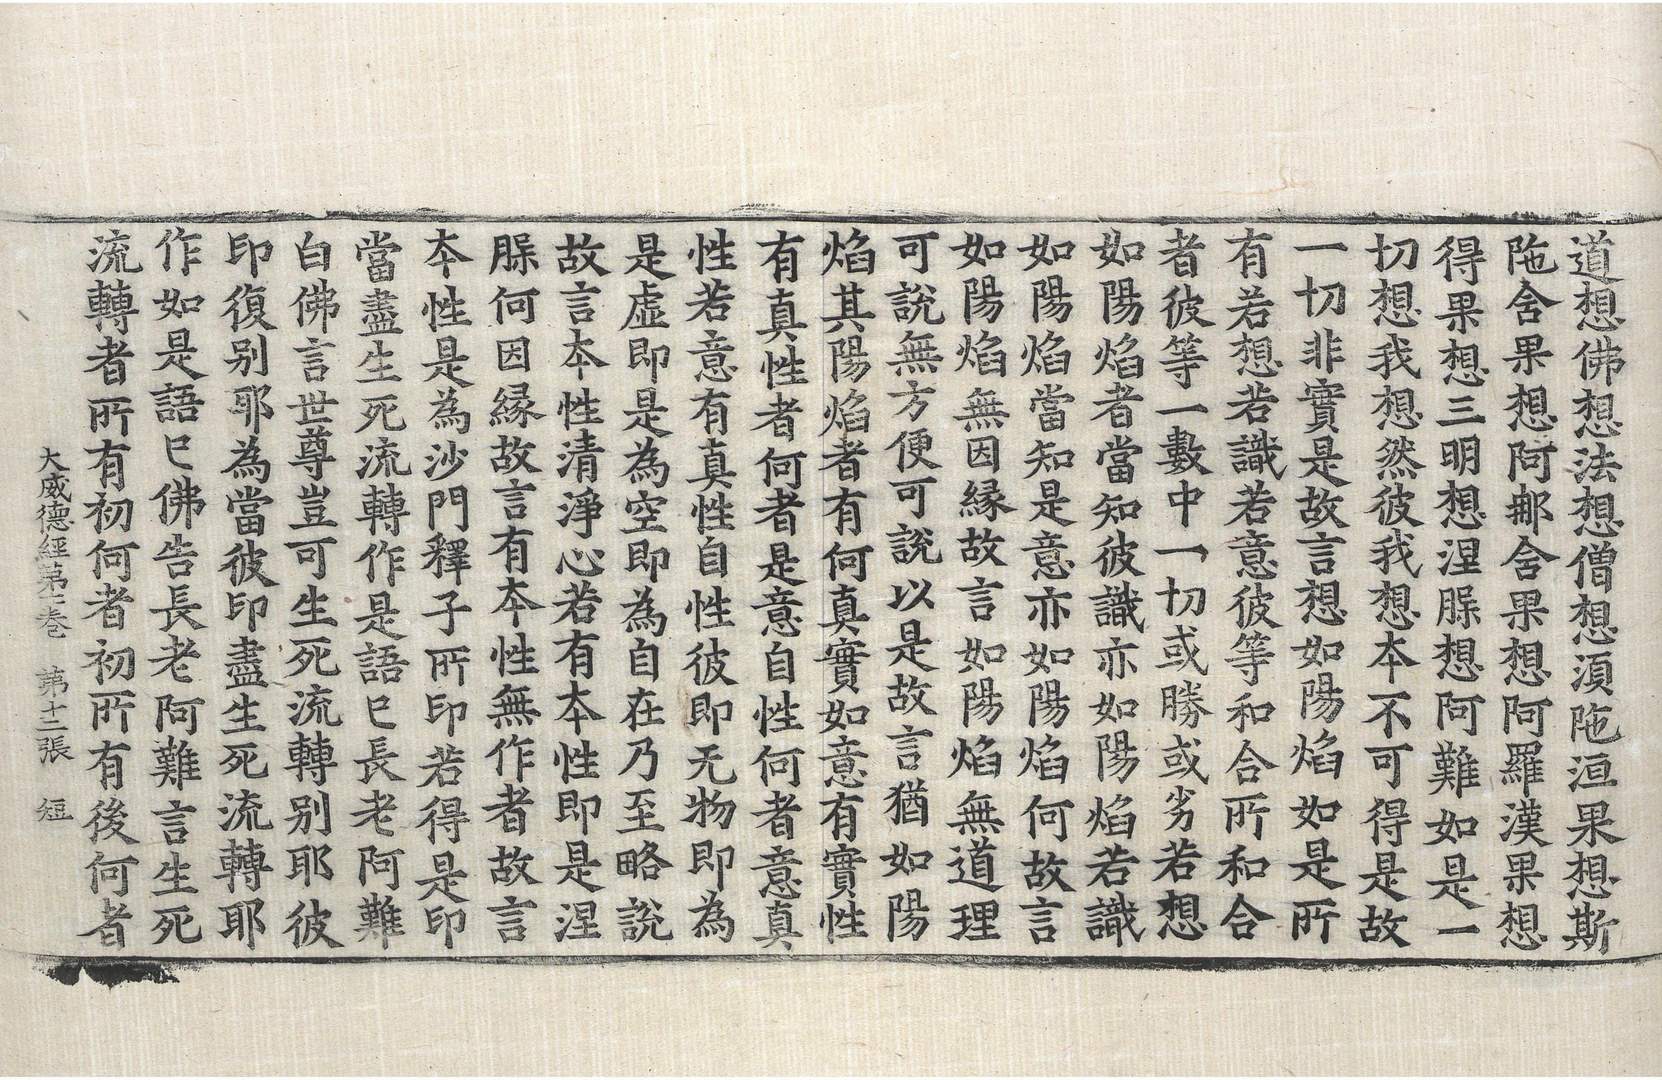 道想佛想法想僧想須陁洹果想斯
陁含果想阿那含果想阿羅漢果想
得果想三明想涅槃想阿難如是一
切想我想然彼我想本不可得是故
一切非實是故言想如陽焰如是所
有若想若識若意彼等和合所和合
者彼等一數中一切或勝或劣若想
如陽焰者當知彼識亦如陽焰若識
如陽焰當知是意亦如陽焰何故言
如陽焰無因緣故言如陽焰無道理
可說無方便可說以是故言猶如陽
焰其陽焰者有何真實如意有實性
有真性者何者是意自性何者意真
性若意有真性自性彼即无物即為
是虛即是為空即為自在乃至略說
故言本性清淨心若有本性即是涅
槃何因緣故言有本性無作者故言
本性是為沙門釋子所印若得是印
當盡生死流轉作是語已長老阿難
白佛言世尊豈可生死流轉別耶彼
印復別耶為當彼印盡生死流轉耶
作如是語已佛告長老阿難言生死
流轉者所有初何者初所有後何者
大威德經第七卷 第十二張 短